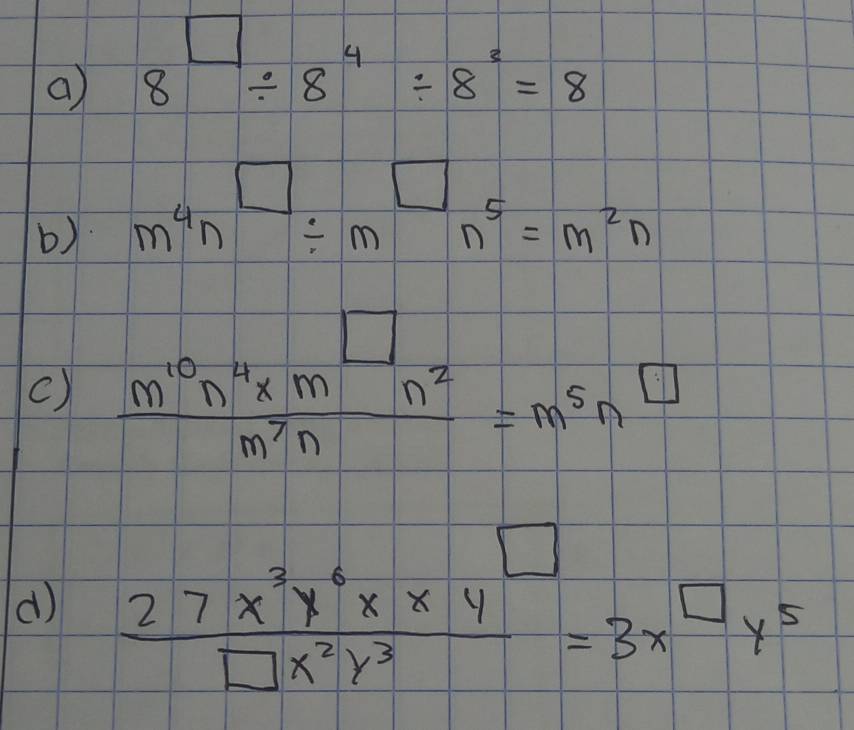 a) 8^□ ÷ 8^4 ÷ 8^3 = 8
b) m^4 n^□ ÷ m^□ n^5 = m^2 n
c) (m^10 n^4 × m^□ n^2) / (m^7 n) = m^5 n^□
d) (27 x^3 y^6 × x 4^□) / (□ x^2 y^3) = 3x^□ y^5